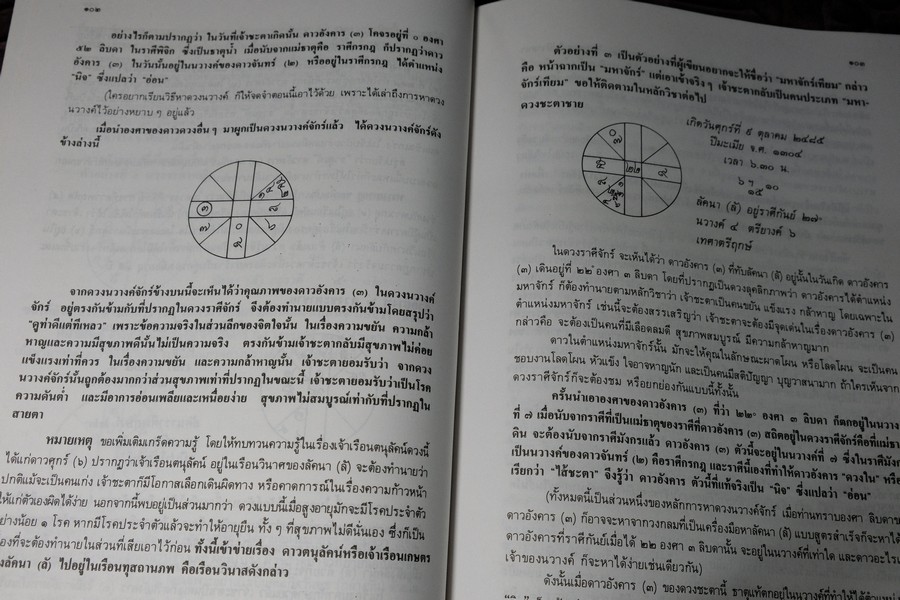 ๑๐๒
อย่างไรก็ตามปรากฏว่า ในวันที่เจ้าชะตาเกิดนั้น ดาวอังคาร (๓) โคจรอยู่ที่ ๐ องศา
๕๒ ลิบดา ในราศีพิจิก ซึ่งเป็นธาตุน้ำ เมื่อนับจากแม่ธาตุคือ ราศีกรกฎ ก็ปรากฏว่าดาว
อังคาร (๓) ในวันนั้นอยู่ในนวางค์ของดาวจันทร์ (๒) หรืออยู่ในราศีกรกฎ ได้ตำแหน่ง
"นิจ" ซึ่งแปลว่า "อ่อน"
(ใครอยากเรียนวิธีหาดวงนวางค์ ก็ให้จดจำตอนนี้เอาไว้ด้วย เพราะได้เล่าถึงการหาดวง
นวางค์ไว้อย่างหยาบ ๆ อยู่แล้ว
เมื่อนำองศาของดาวดวงอื่น ๆ มาผูกเป็นดวงนวางค์จักร์แล้ว ได้ดวงนวางค์จักร์ดัง
ข้างล่างนี้
จากดวงนวางค์จักร์ข้างบนนี้จะเห็นได้ว่าคุณภาพของดาวอังคาร (๓) ในดวงนวางค์
จักร์ อยู่ตรงกันข้ามกับที่ปรากฏในดวงราศีจักร์ จึงต้องทำนายแบบตรงกันข้ามโดยสรุปว่า
"ดูท่าดีแต่ทีเหลว" เพราะข้อความจริงในส่วนลึกของจิตใจนั้น ในเรื่องความขยัน ความกล้า
หาญและความมีสุขภาพดีนั้นไม่เป็นความจริง ตรงกันข้ามเจ้าชะตากลับมีสุขภาพไม่ค่อย
แข็งแรงเท่าที่ควร ในเรื่องความขยัน และความกล้าหาญนั้น เจ้าชะตายอมรับว่า จากดวง
นวางค์จักร์นั้นถูกต้องมากกว่าส่วนสุขภาพเท่าที่ปรากฏในขณะนี้ เจ้าชะตายอมรับว่าเป็นโรค
ความดันต่ำ และมีอาการอ่อนเพลียและเหนื่อยง่าย สุขภาพไม่สมบูรณ์เท่ากับที่ปรากฏใน
สายตา
หมายเหตุ ขอเพิ่มเติมเกร็ดความรู้ โดยให้ทบทวนความรู้ในเรื่องเจ้าเรือนตนุลัคน์ดวงนี้
ได้แก่ดาวศุกร์ (๖) ปรากฏว่าเจ้าเรือนตนุลัคน์ อยู่ในเรือนวินาศของลัคนา (ลั) จะต้องทำนายว่า
ปกติแม้จะเป็นคนเก่ง เจ้าชะตาก็มีโอกาสเลือกเดินผิดทาง หรือคาดการณ์ในเรื่องความก้าวหน้า
ให้แก่ตัวเองผิดได้ง่าย นอกจากนี้พบอยู่เป็นส่วนมากว่า ดวงแบบนี้เมื่อสูงอายุมักจะมีโรคประจำตัว
ย่างน้อย ๑ โรค หากมีโรคประจำตัวแล้วจะทำให้อายุยืน ทั้ง ๆ ที่สุขภาพไม่ดีนั่นเอง ซึ่งก็เป็น
องที่จะต้องทำนายในส่วนที่เสียเอาไว้ก่อน ทั้งนี้เข้าข่ายเรื่อง ดาวตนุลัคน์หรือเจ้าเรือนเกษตร
งลัคนา (ลั) ไปอยู่ในเรือนทุสถานภพ คือเรือนวินาสดังกล่าว
๑๐๓
ตัวอย่างที่ ๓ เป็นตัวอย่างที่ผู้เขียนอยากจะให้ชื่อว่า "มหาจักร์เทียม" กล่าว
คือ หน้าฉากเป็น "มหาจักร์" แต่เอาเข้าจริง ๆ เจ้าชะตากลับเป็นคนประเภท "มหา-
จักร์เทียม" ขอให้ติดตามในหลักวิชาต่อไป
ดวงชะตาชาย
เกิดวันศุกร์ที่ ๙ ตุลาคม ๒๔๘๕
ปีมะเมีย จ.ศ. ๑๓๐๔
เวลา ๖.๓๐ น.
๖ ฯ ๑๐
๑๕
ลัคนา (ลั) อยู่ราศีกันย์ ๒๗°
นวางค์ ๔ ตรียางค์ ๖
เทศาตรีฤกษ์
ในดวงราศีจักร์ จะเห็นได้ว่า ดาวอังคาร (๓) ที่ทับลัคนา (ลั) อยู่นั้นในวันเกิด ดาวอังคาร
(๓) เดินอยู่ที่ ๒๒ องศา ๓ ลิบดา โดยที่ปรากฏเป็นดวงลุคลิกภาพว่า ดาวอังคารได้ตำแหน่ง
มหาจักร์ ก็ต้องทำนายตามหลักวิชาว่า เจ้าชะตาเป็นคนขยัน แข็งแรง กล้าหาญ โดยเฉพาะใน
ตำแหน่งมหาจักร์ เช่นนี้จะต้องสรรเสริญว่า เจ้าชะตาจะต้องมีจุดเด่นในเรื่องดาวอังคาร (๓)
กล่าวคือ จะต้องเป็นคนที่มีเลือดลมดี สุขภาพสมบูรณ์ มีความกล้าหาญมาก
ดาวในตำแหน่งมหาจักร์นั้น มักจะให้คุณในลักษณะผาดโผน หรือโลดโผน จะเป็นคน
ชอบงานโลดโผน หัวแข็ง ใจอาจหาญนัก และเป็นคนมีสติปัญญา บุญวาสนามาก ถ้าใครเห็นจาก
ดวงราศีจักร์ก็จะต้องชม หรือยกย่องกันแบบนี้ทั้งนั้น
ครั้นนำเอาองศาของดาวอังคาร (๓) ที่ว่า ๒๒° องศา ๓ ลิบดา ก็ตกอยู่ในนวาง
ที่ ๗ เมื่อนับจากราศีที่เป็นแม่ธาตุของราศีที่ดาวอังคาร (๓) สถิตอยู่ในดวงราศีจักร์คือที่แม่ธา
ดิน จะต้องนับจากราศีมังกรแล้ว ดาวอังคาร (๓) ตัวนี้จะอยู่ในนวางค์ที่ ๗ ซึ่งในราศีมังก
เป็นนวางค์ของดาวจันทร์ (๒) คือราศีกรกฎ และราศีนี้เองที่ทำให้ดาวอังคาร "ดวงใน" หรือ
เรียกว่า "ไส้ชะตา" จึงรู้ว่า ดาวอังคาร ตัวนี้ที่แท้จริงเป็น "นิจ" ซึ่งแปลว่า "อ่อน"
(ทั้งหมดนี้เป็นส่วนหนึ่งของหลักการหาดวงนวางค์จักร์ เมื่อท่านทราบองศา ลิบดาข
ดาวอังคาร (๓) ก็อาจจะหาจากวงกลมที่เป็นเครื่องมือหาลัคนา (ลั) แบบสูตรสำเร็จก็จะหาได้
ดาวอังคารที่ราศีกันย์เมื่อได้ ๒๒ องศา ๓ ลิบดานั้น จะอยู่ในนวางค์ที่เท่าใด และดาวอะไรเ
เจ้าของนวางค์ ก็จะหาได้ง่ายเช่นเดียวกัน)
ดังนั้นเมื่อดาวอังคาร (๓) ของดวงชะตานี้ ธาตุแท้ตกอยู่ในนวางค์ที่ทำให้ได้ตำแหน่